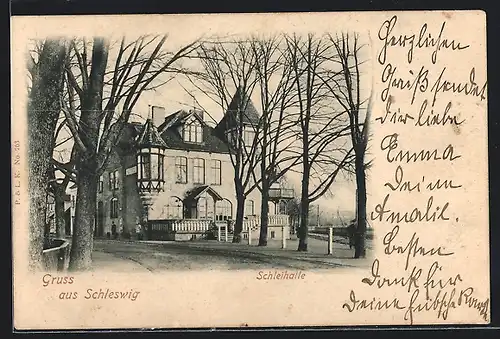 P. & L. K. No. 765
Gruss
aus Schleswig
Schleihalle
Herzlichen
Gruß sendet
dir liebe
Emma
Deine
Amalie.
Besten
Dank für
Deine hübsche Karte